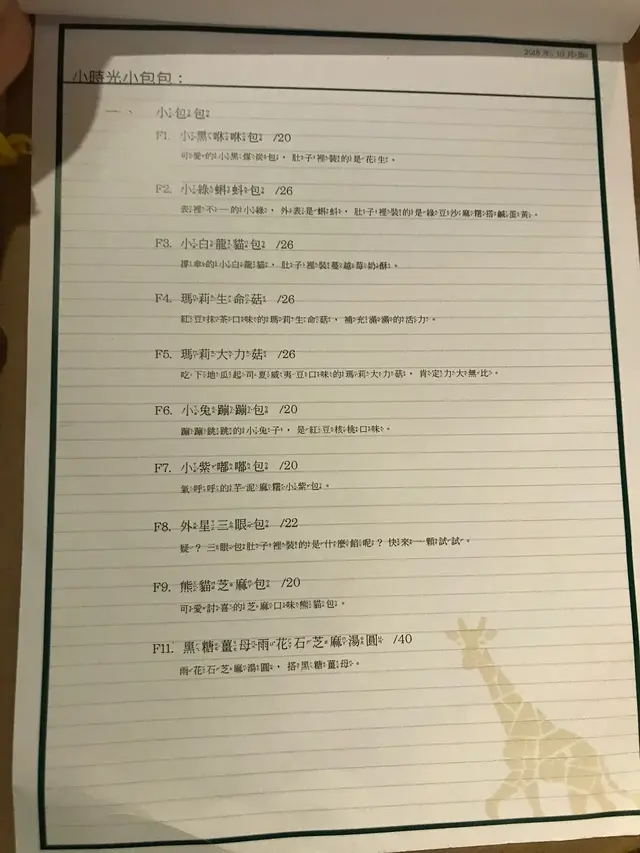 2018 年 10 月
小時光小包包：
一、 小包包
F1. 小黑咻咻包 /20
可愛的小黑煤炭包，肚子裡裝的是花生。
F2. 小綠蝌蚪包 /26
表裡不一的小綠，外表是蝌蚪，肚子裡裝的是綠豆沙麻糬搭鹹蛋黃。
F3. 小白龍貓包 /26
撐傘的小白龍貓，肚子裡裝蔓越莓奶酥。
F4. 瑪莉生命菇 /26
紅豆抹茶口味的瑪莉生命菇，補充滿滿的活力。
F5. 瑪莉大力菇 /26
吃下地瓜起司夏威夷豆口味的瑪莉大力菇，肯定力大無比。
F6. 小兔蹦蹦包 /20
蹦蹦跳跳的小兔子，是紅豆核桃口味。
F7. 小紫嘟嘟包 /20
氣呼呼的芋泥麻糬小紫包。
F8. 外星三眼包 /22
疑？三眼包肚子裡裝的是什麼餡呢？快來一顆試試。
F9. 熊貓芝麻包 /20
可愛討喜的芝麻口味熊貓包。
F11. 黑糖薑母雨花石芝麻湯圓 /40
雨花石芝麻湯圓，搭黑糖薑母。